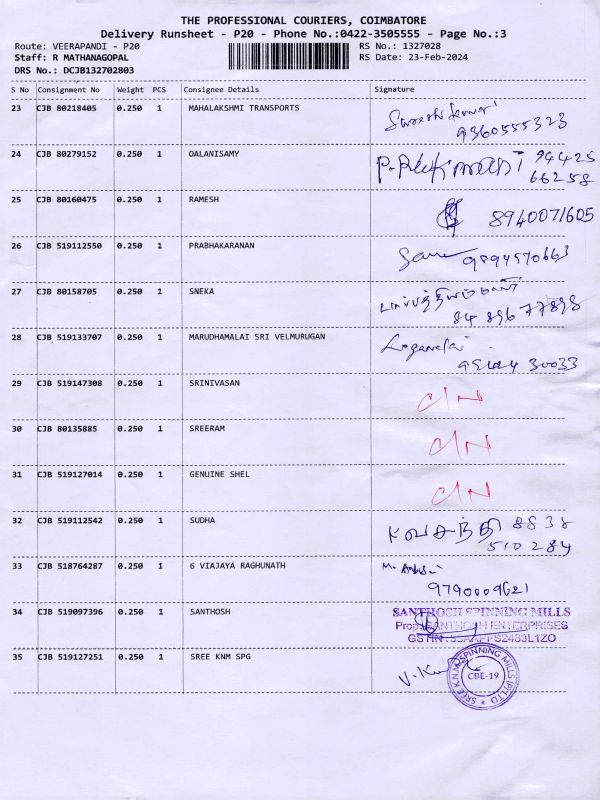 THE PROFESSIONAL COURIERS, COIMBATORE
Delivery Runsheet - P20 - Phone No.:0422-3505555 - Page No.:3
Route: VEERAPANDI - P20 RS No.: 1327028
Staff: R MATHANAGOPAL RS Date: 23-Feb-2024
DRS No.: DCJB132702803
S No Consignment No Weight PCS Consignee Details Signature
23 CJB 80218405 0.250 1 MAHALAKSHMI TRANSPORTS
9360555323
24 CJB 80279152 0.250 1 OALANISAMY 94425
66258
25 CJB 80160475 0.250 1 RAMESH 8940071605
26 CJB 519112550 0.250 1 PRABHAKARANAN 9894570663
27 CJB 80158705 0.250 1 SNEKA
84 89677898
28 CJB 519133707 0.250 1 MARUDHAMALAI SRI VELMURUGAN
30033
29 CJB 519147308 0.250 1 SRINIVASAN C/N
30 CJB 80135885 0.250 1 SREERAM C/N
31 CJB 519127014 0.250 1 GENUINE SHEL C/N
32 CJB 519112542 0.250 1 SUDHA வசந்தி 8838
510284
33 CJB 518764287 0.250 1 6 VIAJAYA RAGHUNATH
9790009621
34 CJB 519097396 0.250 1 SANTHOSH SANTHOSH SPINNING MILLS
Prop: SANTHOSH ENTERPRISES
35 CJB 519127251 0.250 1 SREE KNM SPG V. K
SREE K.N.M. SPINNING MILLS (P) LTD
CBE-19